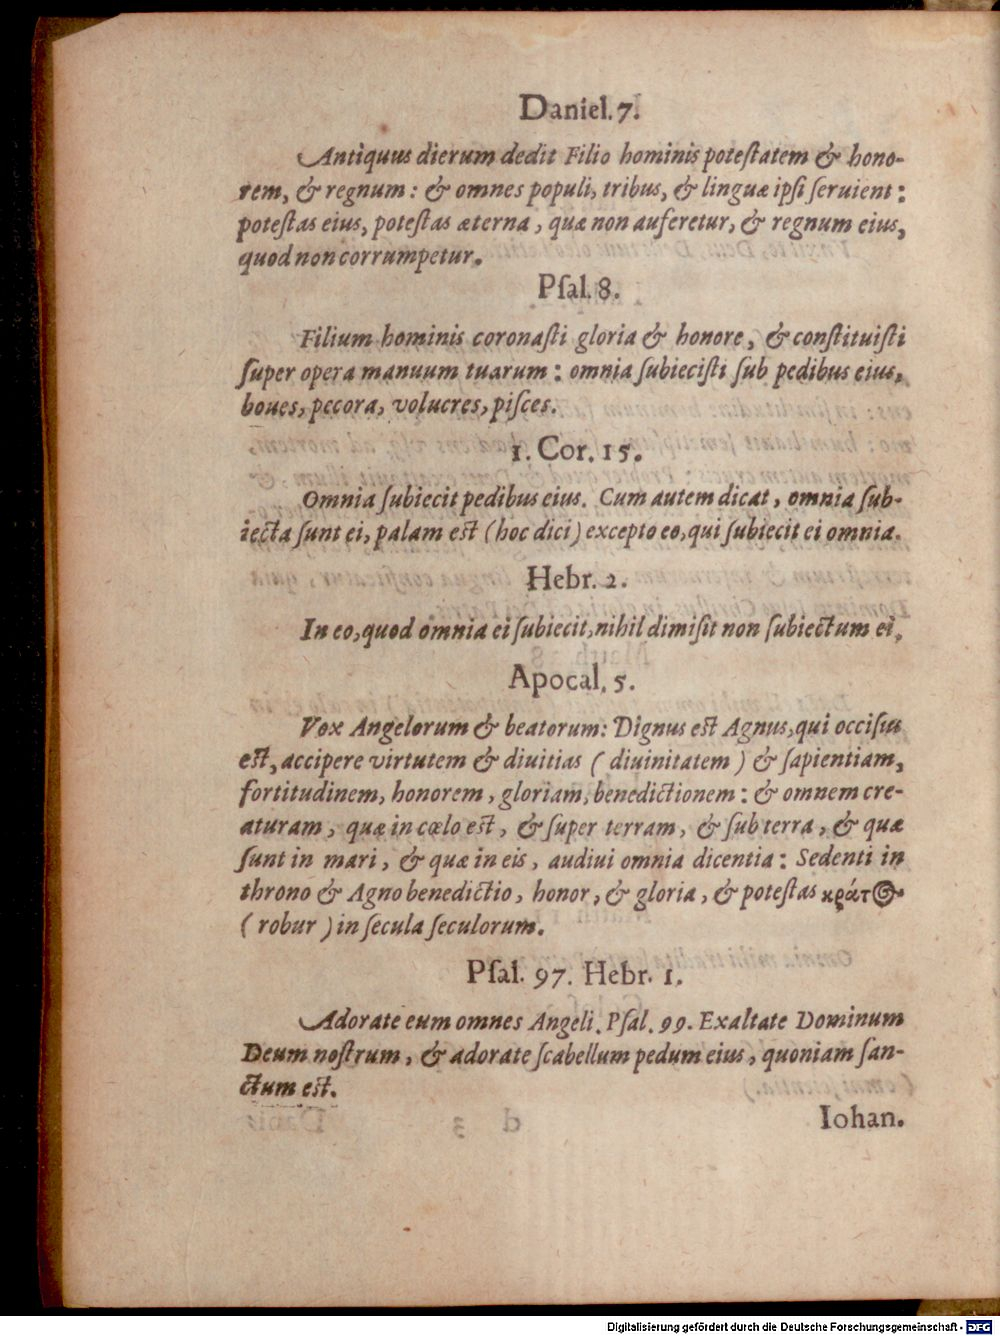 Daniel. 7.
Antiquus dierum dedit Filio hominis poteſtatem & hono-
rem, & regnum: & omnes populi, tribus, & linguæ ipſi ſeruient:
poteſtas eius, poteſtas æterna, quæ non auferetur, & regnum eius,
quod non corrumpetur.
Pſal. 8.
Filium hominis coronaſti gloria & honore, & conſtituiſti
ſuper opera manuum tuarum: omnia ſubieciſti ſub pedibus eius,
boues, pecora, volucres, piſces.
1. Cor. 15.
Omnia ſubiecit pedibus eius. Cum autem dicat, omnia ſub-
iecta ſunt ei, palam eſt (hoc dici) excepto eo, qui ſubiecit ei omnia.
Hebr. 2.
In eo, quod omnia ei ſubiecit, nihil dimiſit non ſubiectum ei.
Apocal. 5.
Vox Angelorum & beatorum: Dignus eſt Agnus, qui occiſus
eſt, accipere virtutem & diuitias (diuinitatem) & ſapientiam,
fortitudinem, honorem, gloriam, benedictionem: & omnem cre-
aturam, quæ in cœlo eſt, & ſuper terram, & ſub terra, & quæ
ſunt in mari, & quæ in eis, audiui omnia dicentia: Sedenti in
throno & Agno benedictio, honor, & gloria, & poteſtas κράτος
(robur) in ſecula ſeculorum.
Pſal. 97. Hebr. 1.
Adorate eum omnes Angeli. Pſal. 99. Exaltate Dominum
Deum noſtrum, & adorate ſcabellum pedum eius, quoniam ſan-
ctum eſt.
Iohan.
Digitalisierung gefördert durch die Deutsche Forschungsgemeinschaft - DFG